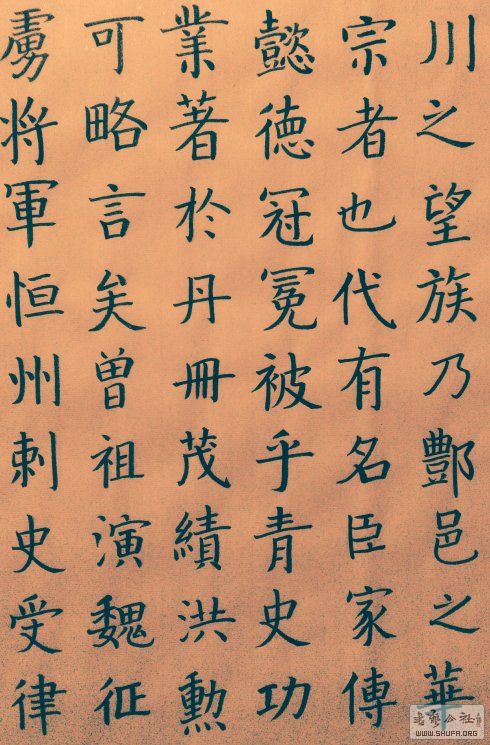 川之望族乃酆邑之華
宗者也代有名臣家傳
懿德冠冕被乎青史功
業著於丹冊茂績洪勳
可略言矣曾祖演魏征
虜将軍恒州刺史受律
公社
WWW.SHUFA.ORG